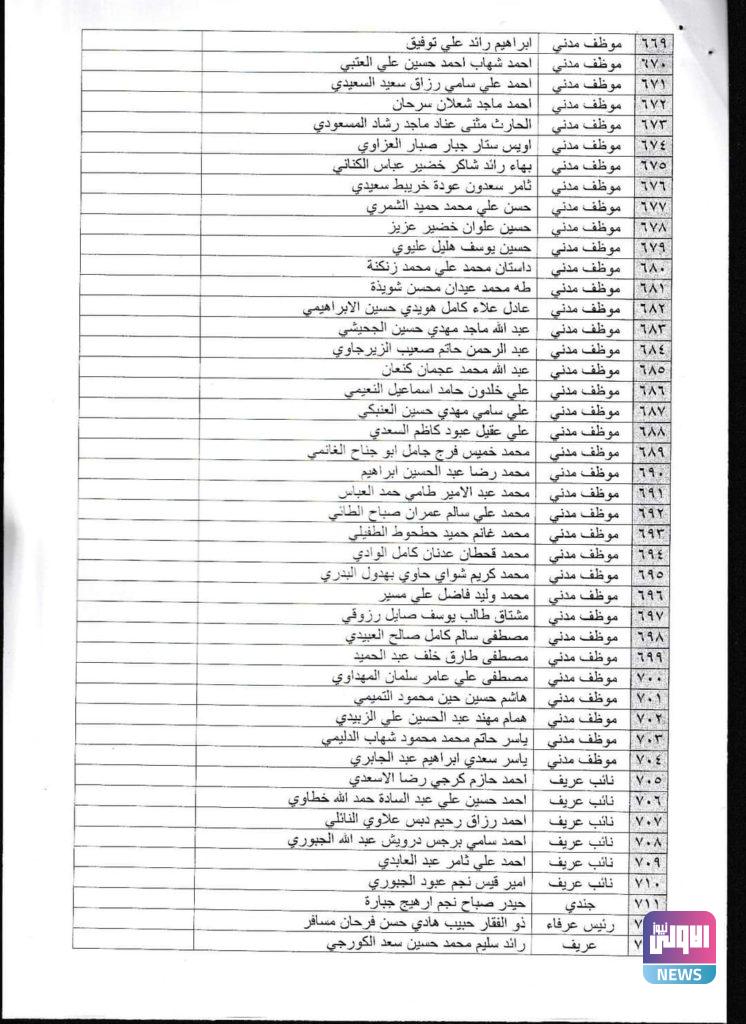 ٦٦٩ موظف مدني ابراهيم رائد علي توفيق
٦٧٠ موظف مدني احمد شهاب احمد حسين علي العتبي
٦٧١ موظف مدني احمد علي سامي رزاق سعيد السعيدي
٦٧٢ موظف مدني احمد ماجد شعلان سرحان
٦٧٣ موظف مدني الحارث مثنى عناد ماجد رشاد المسعودي
٦٧٤ موظف مدني اويس ستار جبار صبار العزاوي
٦٧٥ موظف مدني بهاء رائد شاكر خضير عباس الكناني
٦٧٦ موظف مدني ثامر سعدون عودة خريبط سعيدي
٦٧٧ موظف مدني حسن علي محمد حميد الشمري
٦٧٨ موظف مدني حسين علوان خضير عزيز
٦٧٩ موظف مدني حسين يوسف هليل عليوي
٦٨٠ موظف مدني داستان محمد علي محمد زنكنة
٦٨١ موظف مدني طه محمد عيدان محسن شويذة
٦٨٢ موظف مدني عادل علاء كامل هويدي حسين الابراهيمي
٦٨٣ موظف مدني عبد الله ماجد مهدي حسين الجحيشي
٦٨٤ موظف مدني عبد الرحمن حاتم صعيب الزيرجاوي
٦٨٥ موظف مدني عبد الله محمد عجمان كنعان
٦٨٦ موظف مدني علي خلدون حامد اسماعيل النعيمي
٦٨٧ موظف مدني علي سامي مهدي حسين العنبكي
٦٨٨ موظف مدني علي عقيل عبود كاظم السعدي
٦٨٩ موظف مدني محمد خميس فرج جامل ابو جناح الغانمي
٦٩٠ موظف مدني محمد رضا عبد الحسين ابراهيم
٦٩١ موظف مدني محمد عبد الامير طامي حمد العباس
٦٩٢ موظف مدني محمد علي سالم عمران صباح الطائي
٦٩٣ موظف مدني محمد غانم حميد حطحوط الطفيلي
٦٩٤ موظف مدني محمد قحطان عدنان كامل الوادي
٦٩٥ موظف مدني محمد كريم شواي حاوي بهدول البدري
٦٩٦ موظف مدني محمد وليد فاضل علي مسير
٦٩٧ موظف مدني مشتاق طالب يوسف صايل رزوقي
٦٩٨ موظف مدني مصطفى سالم كامل صالح العبيدي
٦٩٩ موظف مدني مصطفى طارق خلف عبد الحميد
٧٠٠ موظف مدني مصطفى علي عامر سلمان المهداوي
٧٠١ موظف مدني هاشم حسين حين محمود التميمي
٧٠٢ موظف مدني همام مهند عبد الحسين علي الزبيدي
٧٠٣ موظف مدني ياسر حاتم محمد محمود شهاب الدليمي
٧٠٤ موظف مدني ياسر سعدي ابراهيم عبد الجابري
٧٠٥ نائب عريف احمد حازم كرجي رضا الاسعدي
٧٠٦ نائب عريف احمد حسين علي عبد السادة حمد الله خطاوي
٧٠٧ نائب عريف احمد رزاق رحيم دبس علاوي النائلي
٧٠٨ نائب عريف احمد سامي برجس درويش عبد الله الجبوري
٧٠٩ نائب عريف احمد علي ثامر عبد العابدي
٧١٠ نائب عريف امير قيس نجم عبود الجبوري
٧١١ جندي حيدر صباح نجم ارهيج جبارة
٧ رئيس عرفاء ذو الفقار حبيب هادي حسن فرحان مسافر
٧ عريف رائد سليم محمد حسين سعد الكورجي
الاولى نيوز
NEWS